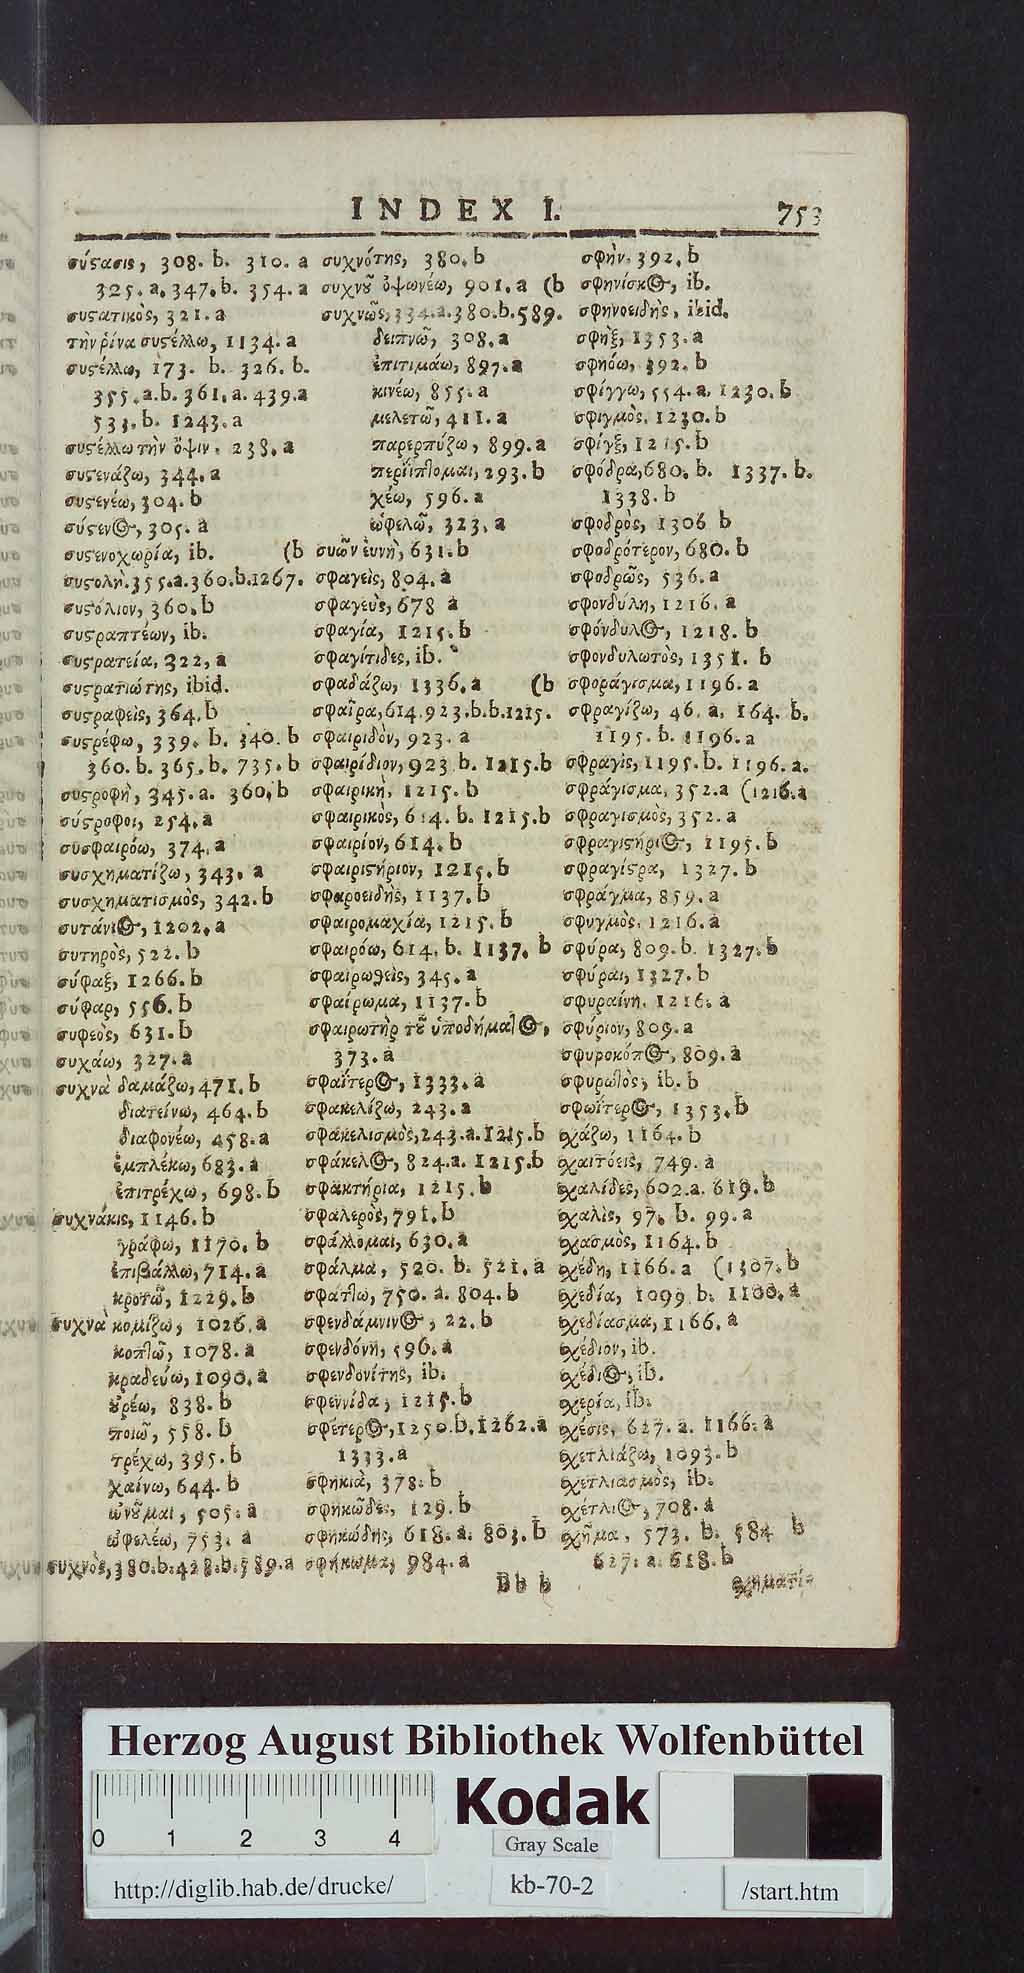 INDEX I. 753
σύςασις, 308. b. 310. a
325. a. 347. b. 354. a
συςατικὸς, 321. a
τὴν ῥίνα συςέλλω, 1134. a
συςέλλω, 173. b. 326. b.
355. a. b. 361. a. 439. a
533. b. 1243. a
συςέλλω τὴν ὄψιν, 238. a
συςενάζω, 344. a
συςενέω, 304. b
σύςενος, 305. a
συςενοχωρία, ib. (b
συςολὴ. 355. a. 360. b. 1267.
συςόλιον, 360. b
συςραπτέων, ib.
συςρατεία, 322, a
συςρατιώτης, ibid.
συςραφεὶς, 364. b
συςρέφω, 339. b. 340. b
360. b. 365. b. 735. b
συςροφὴ, 345. a. 360. b
σύςροφοι, 254. a
συσφαιρόω, 374. a
συσχηματίζω, 343. a
συσχηματισμὸς, 342. b
συτάνιος, 1202. a
συτηρὸς, 522. b
σύφαξ, 1266. b
σύφαρ, 556. b
συφεὸς, 631. b
συχάω, 327. a
συχνὰ δαμάζω, 471. b
διατείνω, 464. b
διαφονέω, 458. a
ἐμπλέκω, 683. a
ἐπιτρέχω, 698. b
συχνάκις, 1146. b
γράφω, 1170. b
ἐπιβάλλω, 714. a
κροτῶ, 1229. b
συχνὰ κομίζω, 1026. a
κοπτῶ, 1078. a
κραδεύω, 1090. a
ȣ̓ρέω, 838. b
ποιῶ, 558. b
τρέχω, 395. b
χαίνω, 644. b
ὠνȣ͂μαι, 505. a
ὠφελέω, 753. a
συχνὸς, 380. b. 428. b. 589. a
συχνότης, 380. b
συχνȣ͂ ὀψωνέω, 901. a (b
συχνῶς, 334. a. 380. b. 589.
δειπνῶ, 308. a
ἐπιτιμάω, 897. a
κινέω, 855. a
μελετῶ, 411. a
παρερπύζω, 899. a
περιΐπτομαι, 293. b
χέω, 596. a
ὠφελῶ, 323. a
συῶν ἐυνὴ, 631. b
σφαγεὶς, 804. a
σφαγεὺς, 678 a
σφαγία, 1215. b
σφαγίτιδες, ib.
σφαδάζω, 1336. a (b
σφαῖρα, 614. 923. b. b. 1215.
σφαιριδὸν, 923. a
σφαιρίδιον, 923 b. 1215. b
σφαιρικὴ, 1215. b
σφαιρικὸς, 614. b. 1215. b
σφαιρίον, 614. b
σφαιριςήριον, 1215. b
σφαιροειδὴς, 1137. b
σφαιρομαχία, 1215. b
σφαιρόω, 614. b. 1137. b
σφαιρωθεὶς, 345. a
σφαίρωμα, 1137. b
σφαιρωτὴρ τȣ͂ ὑποδήματος,
373. a
σφαΐτερος, 1333. a
σφακελίζω, 243. a
σφακελισμὸς, 243. a. 1215. b
σφάκελος, 824. a. 1215. b
σφακτήρια, 1215. b
σφαλερὸς, 791. b
σφάλλομαι, 630. a
σφάλμα, 520. b. 521. a
σφάτlω, 750. a. 804. b
σφενδάμνινος, 22. b
σφενδόνη, 596. a
σφενδονίτης, ib.
σφεννίδα, 1215. b
σφέτερος, 1250. b. 1262. a
1333. a
σφηκιὰ, 378. b
σφηκῶδες, 129. b
σφηκώδης, 618. a. 803. b
σφήκωμα, 984. a
σφὴν, 392. b
σφηνίσκος, ib.
σφηνοειδὴς, ibid.
σφὴξ, 1353. a
σφηόω, 392. b
σφίγγω, 554. a. 1230. b
σφιγμὸς, 1230. b
σφίγξ, 1215. b
σφόδρα, 680. b. 1337. b.
1338. b
σφοδρὸς, 1306 b
σφοδρότερον, 680. b
σφοδρῶς, 536. a
σφονδύλη, 1216. a
σφόνδυλος, 1218. b
σφονδυλωτὸς, 1351. b
σφοράγισμα, 1196. a
σφραγίζω, 46. a. 164. b.
1195. b. 1196. a
σφραγὶς, 1195. b. 1196. a.
σφράγισμα, 352. a (1216. a
σφραγισμὸς, 352. a
σφραγιςήριος, 1195. b
σφραγίςρα, 1327. b
σφράγμα, 859. a
σφυγμὸς, 1216. a
σφύρα, 809. b. 1327. b
σφύραι, 1327. b
σφυραίνη, 1216. a
σφύριον, 809. a
σφυροκόπος, 809. a
σφυρωτὸς, ib. b
σφωΐτερος, 1353. b
σχάζω, 1164. b
σχαιτόεις, 749. a
σχαλίδες, 602. a. 619. b
σχαλὶς, 97. b. 99. a
σχασμὸς, 1164. b
σχέδη, 1166. a (1307. b
σχεδία, 1099 b. 1100. a
σχεδίασμα, 1166. a
σχέδιον, ib.
σχέδιος, ib.
σχερία, ib.
σχέσις, 627. a. 1166. a
σχετλιάζω, 1093. b
σχετλιασμὸς, ib.
σχέτλιος, 708. a
σχῆμα, 573. b. 584 b
627. a. 618. b
Bb b σχηματί-
Herzog August Bibliothek Wolfenbüttel
Kodak
0 1 2 3 4
Gray Scale
http://diglib.hab.de/drucke/ kb-70-2 /start.htm